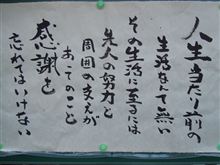 人生当たり前の
生活なんて無い
その生活に至るには
先人の努力と
周囲の支えが
あってのこと
感謝を
忘れてはいけない